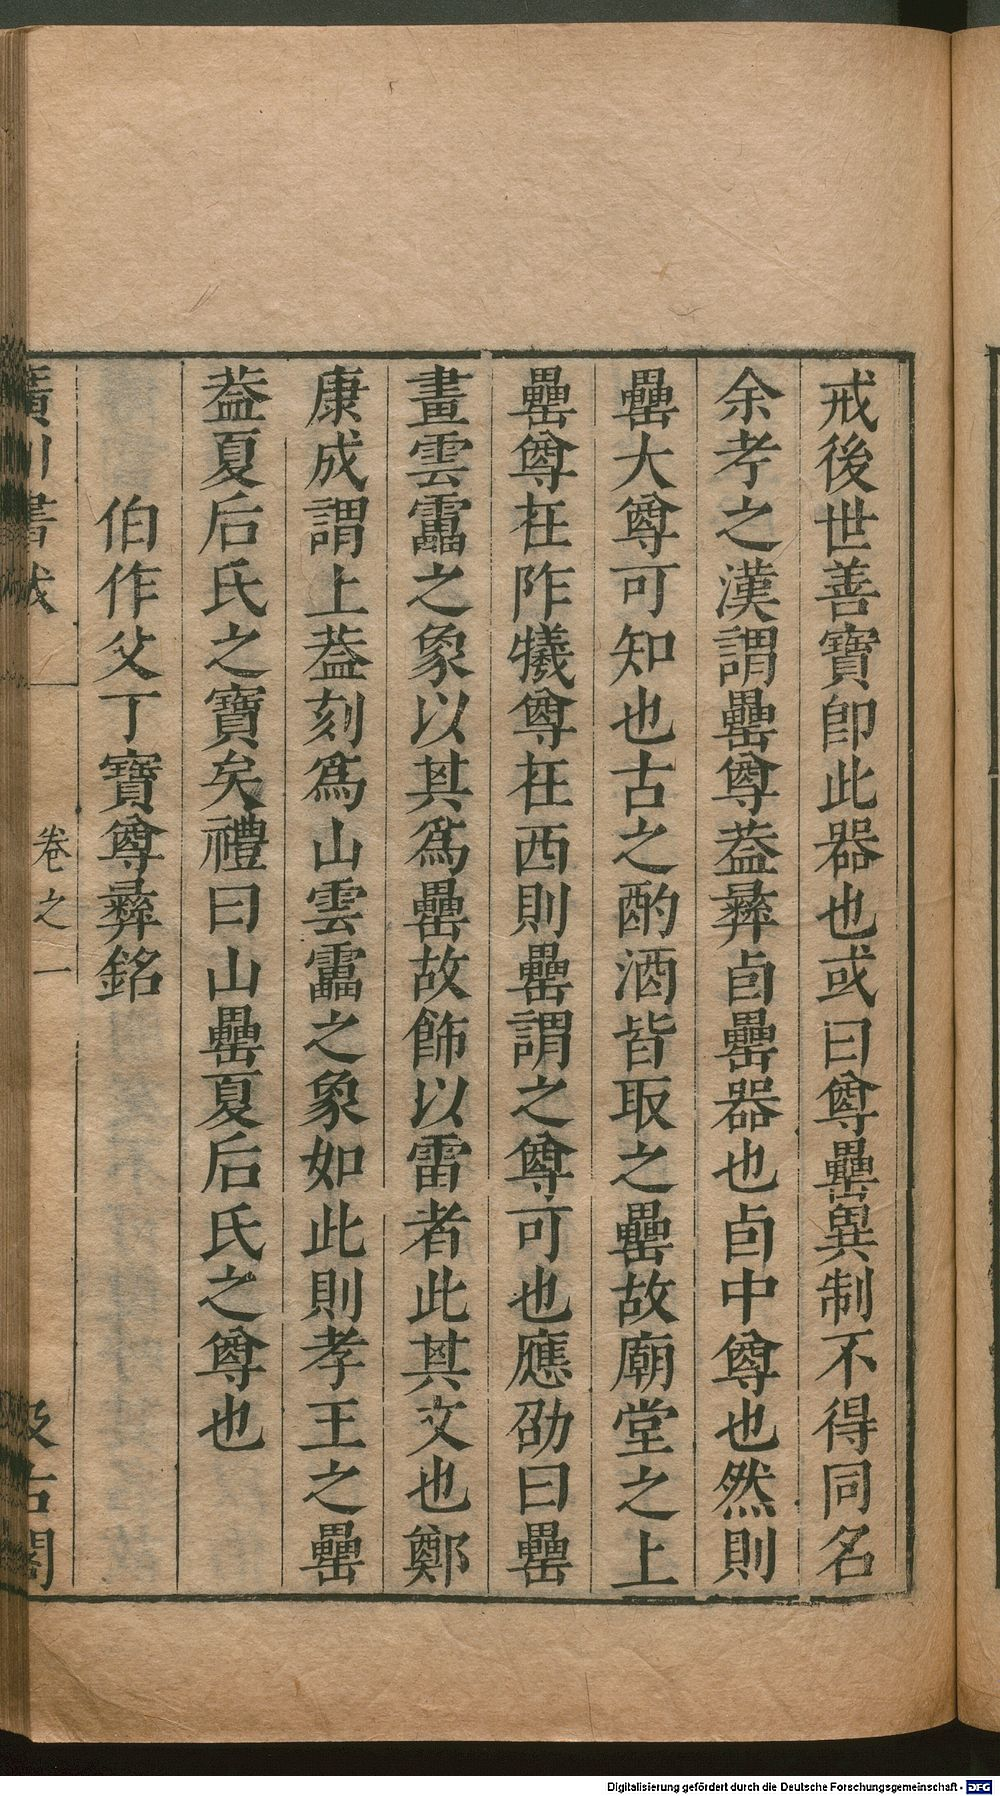 戒後世善寶即此器也或曰尊罍異制不得同名
余考之漢謂罍尊葢彝卣罍器也卣中尊也然則
罍大尊可知也古之酌酒皆取之罍故廟堂之上
罍尊在阼犧尊在西則罍謂之尊可也應劭曰罍
畫雲靁之象以其爲罍故飾以雷者此其文也鄭
康成謂上葢刻爲山雲靁之象如此則孝王之罍
葢夏后氏之寶矣禮曰山罍夏后氏之尊也
伯作父丁寶尊彝銘
廣川書跋
卷之一
汲古閣
Digitalisierung gefördert durch die Deutsche Forschungsgemeinschaft - DFG